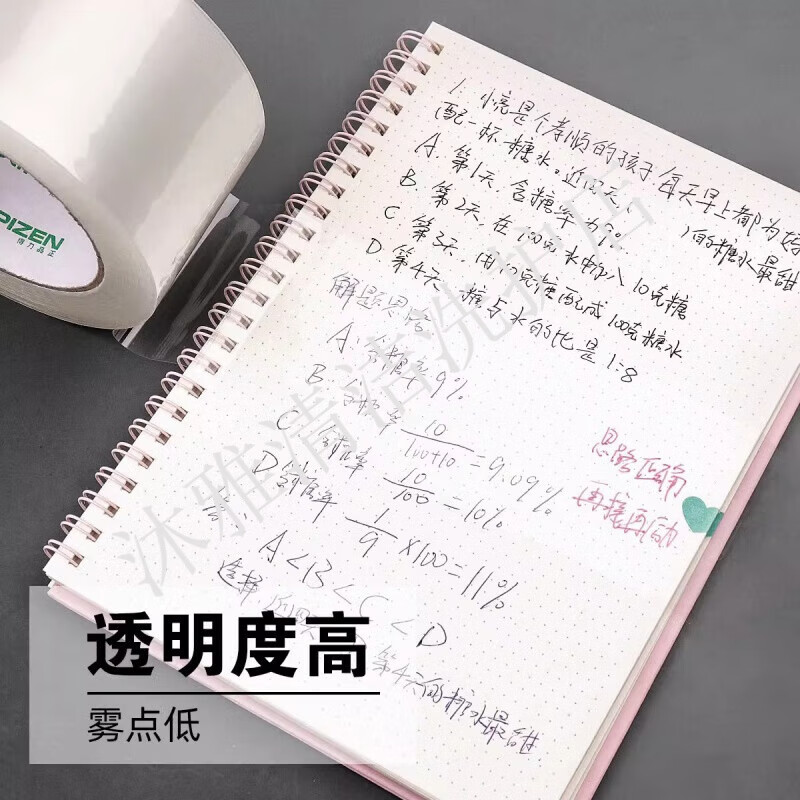 1. 小亮是个孝顺的孩子 每天早上都为妈
配一杯糖水。近四天, )的糖水最甜
A. 第1天,含糖率为9%
B. 第2天,在100克水中加入10克糖
C 第3天,用10克糖配成100克糖水
D 第4天,糖与水的比是1:8
解题思路
A: 含糖率9%
B. 含糖率 10/100+10=9.09%
C: 含糖率 10/100=10%
D 含糖率 1/9×100=11%
答:
A<B<C<D
选择
第4天的糖水最甜
思路正确
再接再厉
PIZEN
博力品正
沐雅清洁洗护店
透明度高
雾点低